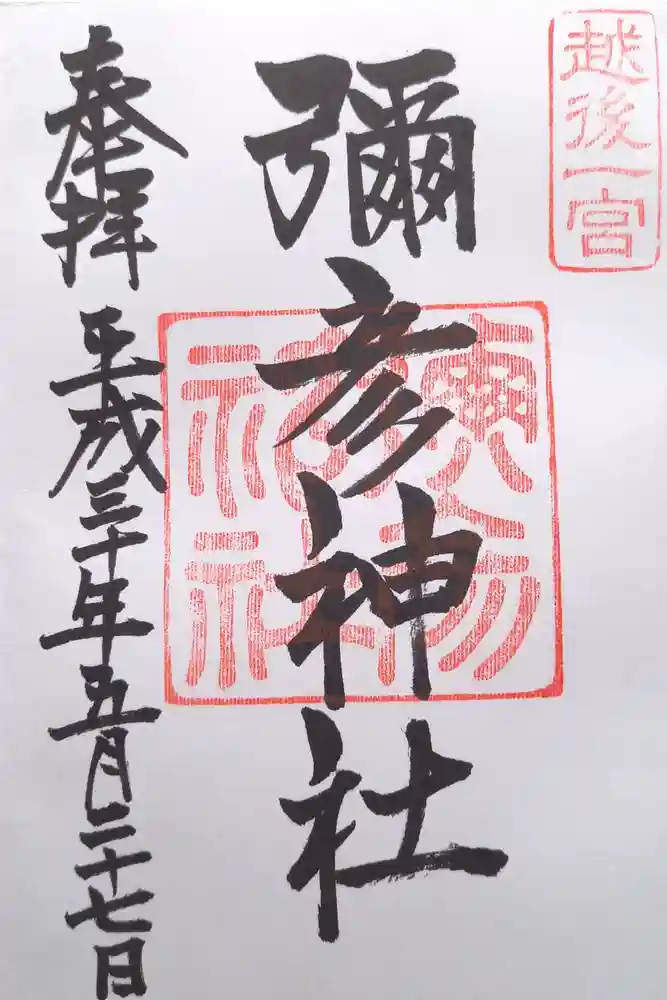 越後一宮
彌彦神社
奉拝
平成三十年五月二十七日